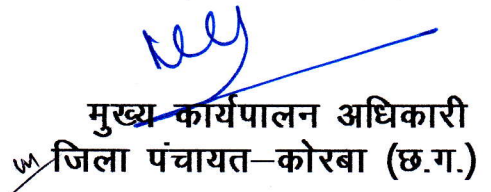 मुख्य कार्यपालन अधिकारी
जिला पंचायत–कोरबा (छ.ग.)